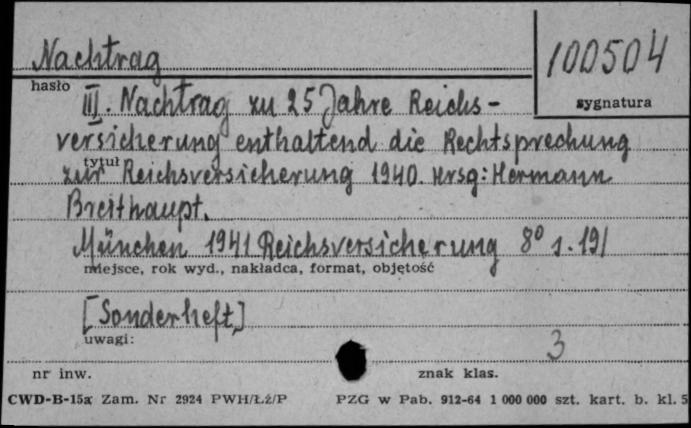 Nachtrag
100504
hasło
sygnatura
III. Nachtrag zu 25 Jahre Reichs-
versicherung enthaltend die Rechtsprechung
tytuł
zur Reichsversicherung 1940. Hrsg: Hermann
Breithaupt.
München 1941 Reichsversicherung 8° s. 191
miejsce, rok wyd., nakładca, format, objętość
[Sonderheft]
uwagi:
3
nr inw.
znak klas.
CWD-B-15a Zam. Nr 2924 PWH/Łź/P PZG w Pab. 912-64 1 000 000 szt. kart. b. kl. 5